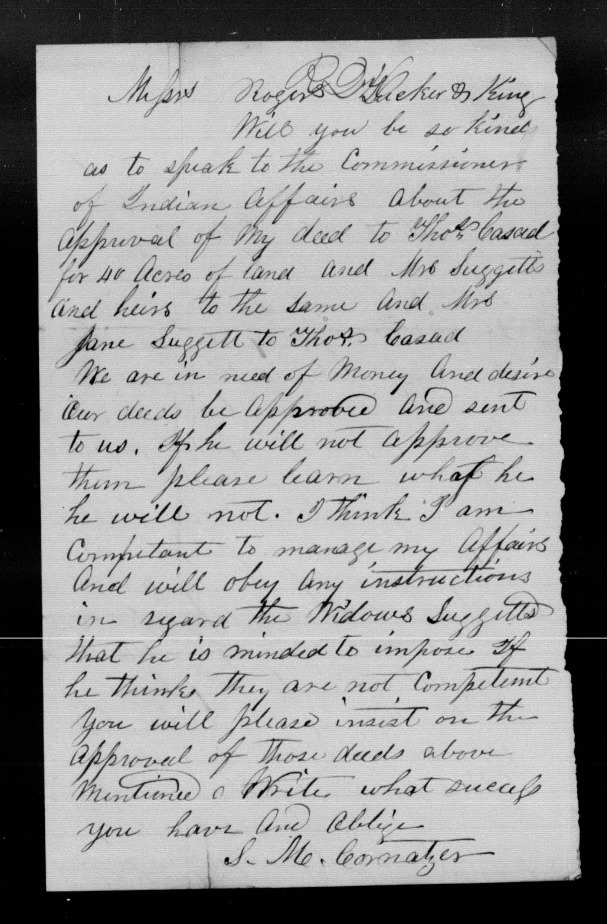 Messrs Rogers Dr Tucker & King
Will you be so kind
as to speak to the Commissioner
of Indian Affairs about the
approval of My deed to Thos. Casad
for 40 Acres of land and Mrs Suggetts
and heirs to the same And Mrs
Jane Suggett to Thos. Casad
We are in need of Money And desire
our deeds be approved and sent
to us. If he will not approve
them please learn what he
he will not. I think I am
Competant to manage my Affairs
And will obey any instructions
in regard the Widows Suggetts
that he is minded to impose If
he thinks they are not Competent
You will please insist on the
approval of those deeds above
Mentioned Write what success
you have And oblige
S. M. Cornatzer